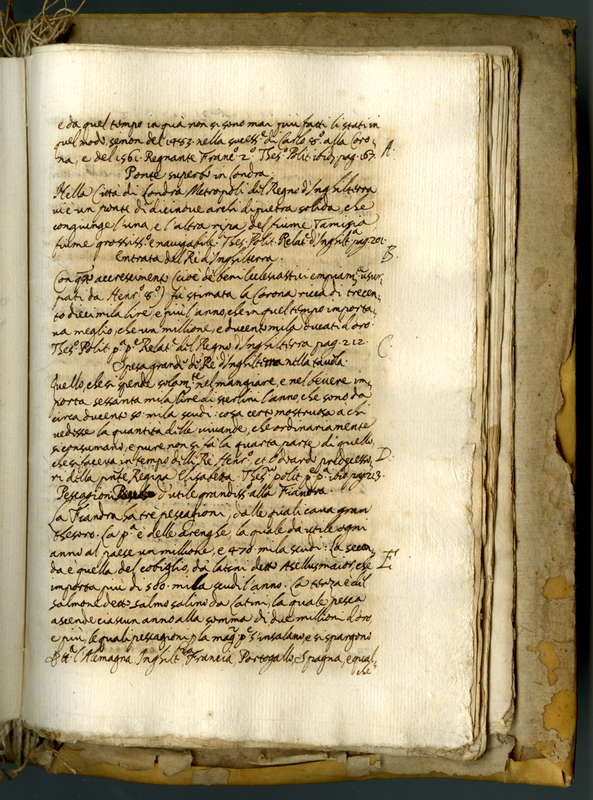 e da quel tempo in quà non si sono mai più fatti li stati in
quel modo, se non del 1483. nella success.e di Carlo 8.º alla Coro-
na, e del 1561. Regnante Franc.º 2.º Thes.º Polit. ibid. pag. 187. A.
Ponte superbo in Londra.
Nella Città di Londra Metropoli del Regno d'Inghilterra
vi è un ponte di dicinove archi di pietra solida, che
congiunge l'una, e l'altra ripa del fiume Tamigia
fiume grossiss.º e navigabile. Thes. Polit. Relat.e d'Inghilt.a pag. 201. B.
Entrata del Re d'Inghilterra.
Con q.sta accrescimenti (cioè de beni Ecclesiastici empiam.te usur-
pati da Henr.º 8.º) fù stimata la Corona ricca di trecen-
to dieci mila lire, e più l'anno, che in quel tempo importa-
va meglio, che un millione, e ducento mila ducati d'oro.
Thes.º Polit. p.a p.e Relat.e del Regno d'Inghilterra pag. 212. C.
Spesa grande del Re d'Inghilterra nella tavola.
Quello, che si spende solam.te nel mangiare, e nel bevere im-
porta sessanta mila lire di sterlini l'anno, che sono da
circa ducento 50. mila scudi: cosa certo mostruosa a chi
vedesse la quantità delle vivande, che ordinariamente
si consumano, e pure non si fà la quarta parte di quello,
che si faceva in tempo delli Re Henr.º et Odoardo predecesso- D.
ri della pnte Regina Elisabetta. Thes.º polit. p.a p.e ibid. pag. 213.
Pescagioni d'utile grandiss.º alla Fiandra.
La Fiandra hà tre pescagioni, dalle quali cava gran
thesoro. La p.a è delle Arenghe, la quale dà utile ogni
anno al paese un millione, e 470. mila scudi: la secon- E.
da è quella del cobiglio, da latini detto Asellus maior, che
importa più di 500. mila scudi l'anno. La terza è del
salmone detto salmo salino da latini, la quale pesca
ascende ciascun anno alla somma di due millioni d'oro,
e più, le quali pescagioni p la mag.r p.e s'insalano, e si spargono
p tt.a l'Alemagna, Inghilt.ra Francia, Portogallo, Spagna, e qual-
che